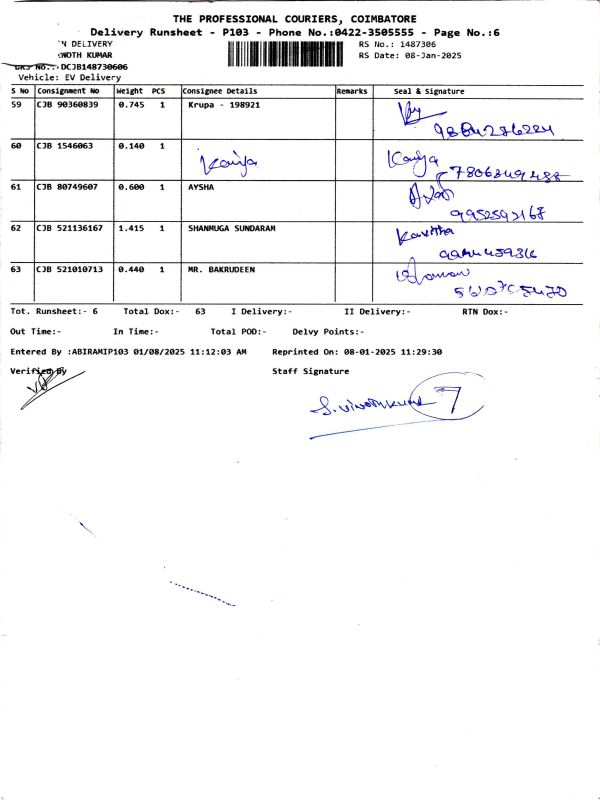 THE PROFESSIONAL COURIERS, COIMBATORE
Delivery Runsheet - P103 - Phone No.:0422-3505555 - Page No.:6
N DELIVERY RS No.: 1487306
NOTH KUMAR RS Date: 08-Jan-2025
No.: DCJB148730606
Vehicle: EV Delivery
S No Consignment No Weight PCS Consignee Details Remarks Seal & Signature
59 CJB 90360839 0.745 1 Krupa - 198921
60 CJB 1546063 0.140 1
61 CJB 80749607 0.600 1 AYSHA
9952592167
62 CJB 521136167 1.415 1 SHANMUGA SUNDARAM Kavitha
63 CJB 521010713 0.440 1 MR. BAKRUDEEN
Tot. Runsheet:- 6 Total Dox:- 63 I Delivery:- II Delivery:- RTN Dox:-
Out Time:- In Time:- Total POD:- Delvy Points:-
Entered By :ABIRAMIP103 01/08/2025 11:12:03 AM Reprinted On: 08-01-2025 11:29:30
Verified By Staff Signature
7